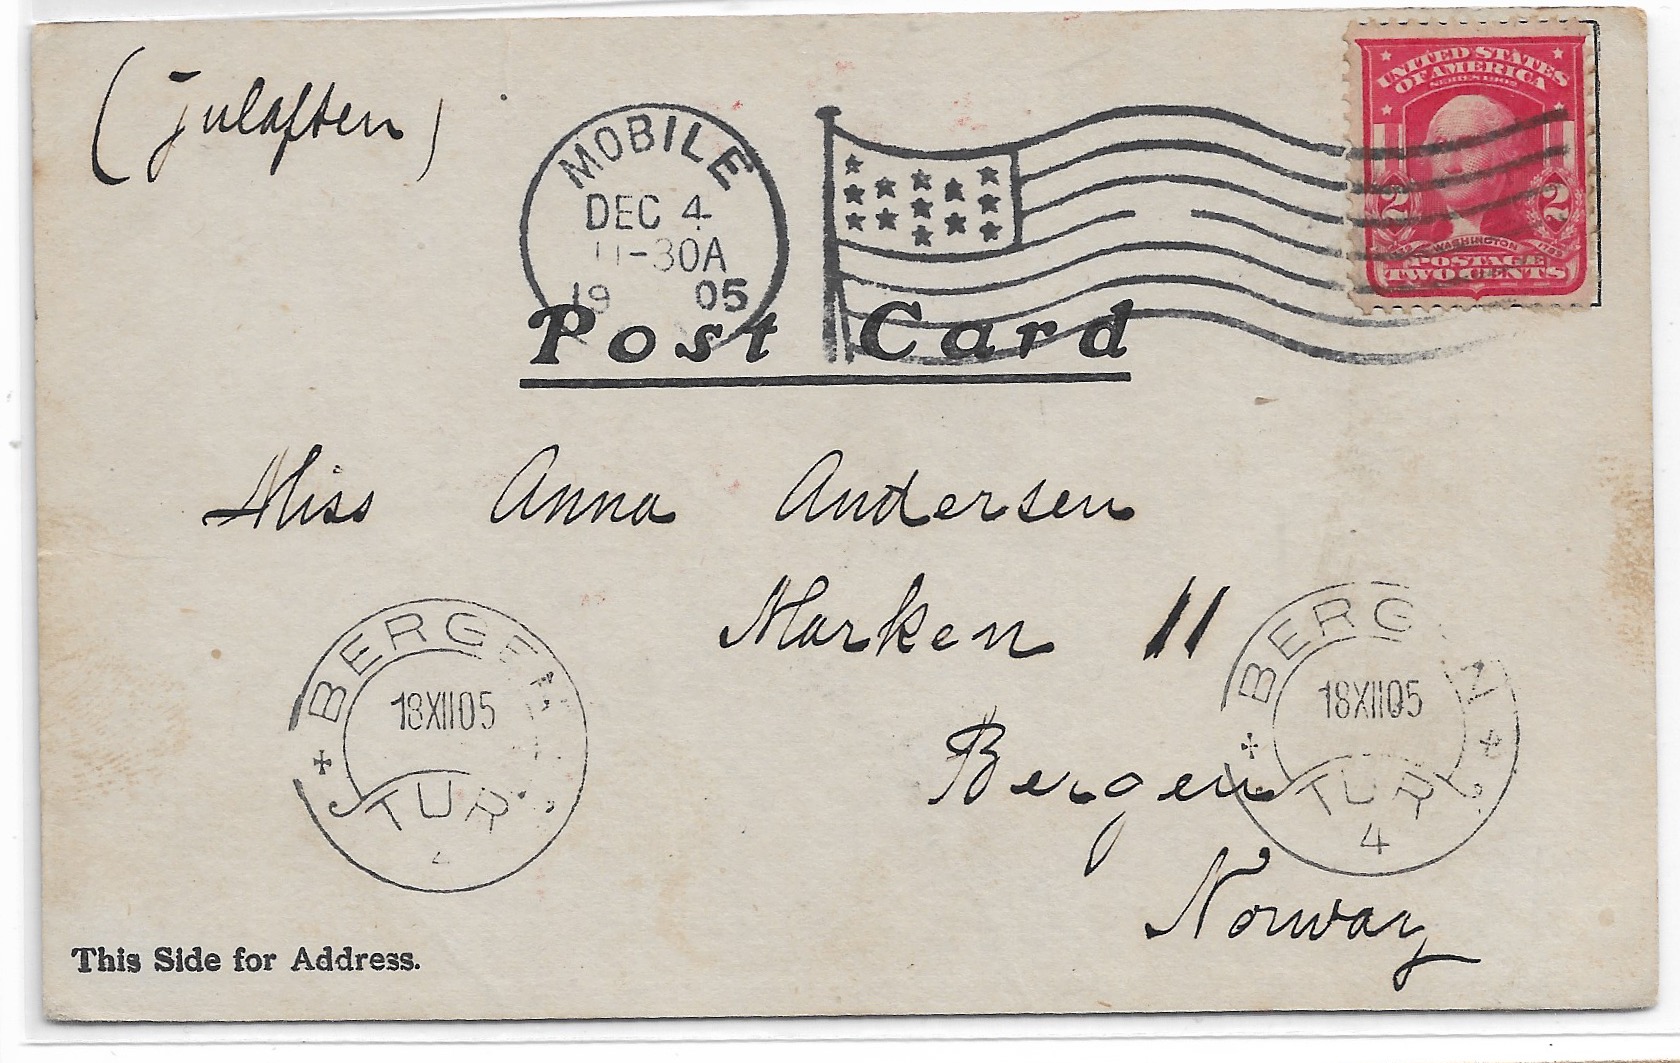 (Julaften)
MOBILE
DEC 4
11-30A
19 05
UNITED STATES
OF AMERICA
SERIES 1902
2 2
WASHINGTON
POSTAGE
TWO CENTS
Post Card
Miss Anna Andersen
Marken 11
Bergen
Norway
BERGEN
18XII05
TUR
4
BERGEN
18XII05
TUR
4
This Side for Address.